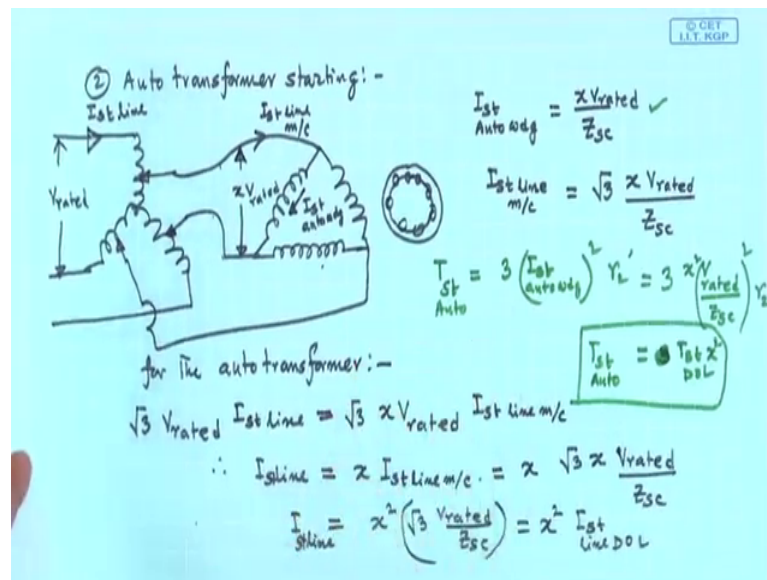 © CET
I.I.T. KGP
② Auto transformer starting:-
I st line
I st line m/c
V rated
x V rated
I st auto wdg
I st Auto wdg = x V rated / Z sc ✓
I st line m/c = √3 x V rated / Z sc
T st Auto = 3 (I st auto wdg)² r₂' = 3 x² (V rated / Z sc)² r₂
T st Auto = T st DOL x²
for the autotransformer:-
√3 V rated I st line = √3 x V rated I st line m/c
∴ I st line = x I st line m/c. = x √3 x V rated / Z sc
I st line = x² (√3 V rated / Z sc) = x² I st line DOL